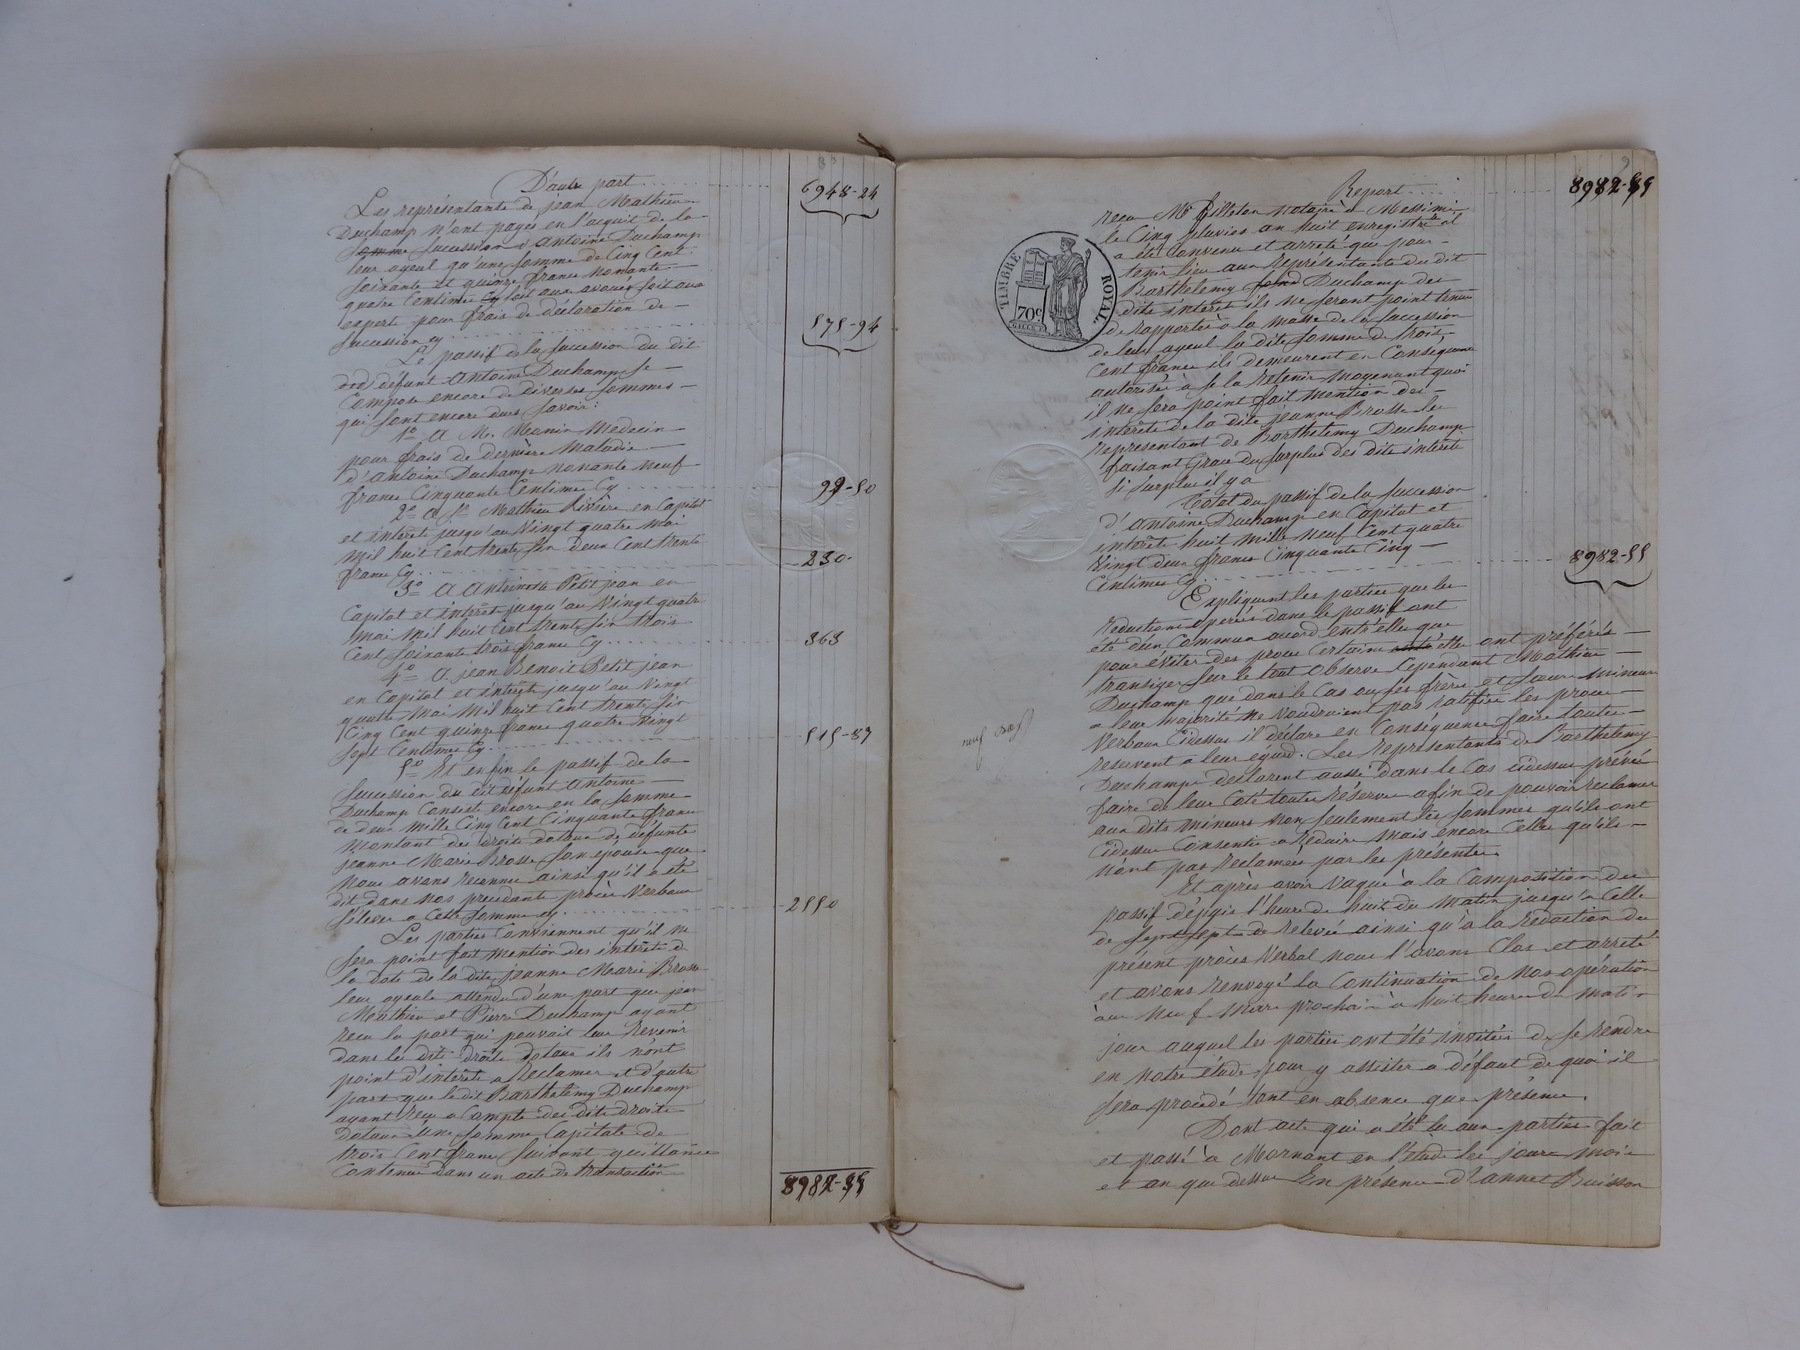 D'autre part 6948-24
Les représentants de jean Mathieu
Duchamp n'ont payés en l'acquit de la
somme succession d'antoine Duchamp
leur ayeul qu'une somme de Cinq Cent
soixante et quinze francs nonante
quatre Centimes Cy soit aux avoués soit aux
experts pour frais de déclaration de
succession cy 575-94
Le passif de la succession du dit
défunt Antoine Duchamp se
Compose encore de diverses sommes
qui sont encore dues savoir:
1o A M. Medecin
pour frais de dernière Maladie
d'antoine Duchamp nonante neuf
francs Cinquante Centimes Cy 99-50
2o a Sr Mathieu Rivière en Capital
et intérêt jusqu'au Vingt quatre mai
Mil huit Cent trente six deux Cent trente
francs Cy 230-
3o A Antoinette Petitjean en
Capital et intérêt jusqu'au Vingt quatre
mai Mil huit Cent trente six trois
Cent soixante trois francs Cy 363
4o A jean Benoit Petit jean
en Capital et intérêt jusqu'au Vingt
quatre Mai Mil huit Cent trente six
Cinq Cent quinze francs quatre Vingt
sept Centimes Cy 515-87
5o Et enfin le passif de la
succession du dit défunt Antoine
Duchamp Consiste encore en la somme
de deux Mille Cinq Cent Cinquante francs
Montant des droits dotaux de défunte
jeanne Marie Brosse son épouse que
Nous avons reconnu ainsi qu'il a été
dit dans nos precedants procès Verbaux
s'élever a Cette somme cy 2550
Les parties Conviennent qu'il ne
sera point fait mention des intérêts de
la dote de la dite jeanne Marie Brosse
leur ayeule attendu d'une part que jean
Mathieu et Pierre Duchamp ayant
recu la part qui pouvait leur revenir
dans les dits droits dotaux ils n'ont
point d'intérêt a Reclamer et d'autre
part que le dit Barthelemy Duchamp
ayant reçu a Compte des dits droits
dotaux une somme Capitale de
trois Cent francs suivant quittance
Contenue dans un acte de transaction
8982-55
9
Report 8982-55
recu Me notaire a Messimi
le Cinq pluvios an huit enregistré il
a été Convenu et arreté que pour
tenir lieu aux représentants du dit
Barthelemy Duchamp des
dits intérêts ils ne seront point tenus
de rapporter à la masse de la succession
de leur ayeul la dite somme de trois
Cent francs ils demeurent en Conséquence
autorisés à se la retenir moyenant quoi
il ne sera point fait mention des
intérêts de la dite jeanne Brosse les
représentant de Barthelemy Duchamp
faisant Grace du surplus des dits intérêts
si surplus il y a
Total du passif de la succession
d'antoine Duchamp en Capital et
intérêts huit mille Neuf Cent quatre
Vingt deux francs Cinquante Cinq
Centimes Cy 8982-55
Expliquent les parties que les
reductions opérées dans le passif ont
été d'un Commun accord entr'elle que
pour éviter des procès Certains elles ont préférés
transiger sur le tout Observe Cependant Mathieu
Duchamp que dans le Cas ou ses frères et soeurs mineurs
a leur majorité ne voudraient pas ratifier les procès
Verbaux Cidessus il déclare en Conséquence faire toutes
reservent a leur égard. Les représentants de Barthelemy
Duchamp declarent aussi dans le Cas cidessus prévu
faire de leur Coté toutes réserves afin de pouvoir reclamer
aux dits mineurs non seulement les sommes qu'ils ont
Cidessus Consentis a réduire mais encore Celles qu'ils
n'ont pas reclamées par les présentes.
Et après avoir Vaqué à la Composition du
passif dépuis l'heure de huit du Matin jusqu'a Celle
de sept de relevée ainsi qu'a la rédaction du
présent procès Verbal nous l'avons Clos et arreté
et avons renvoyé la Continuation de nos opération
au neuf prochain à huit heures du matin
jour auquel les parties ont été invitées de se rendre
en notre étude pour y assister a défaut de quoi il
sera procédé tant en absence que présence.
Dont acte qui a été lu aux parties fait
et passé à Mornant en l'étude les jours mois
et an que dessus En présence d'annet Buisson
TIMBRE ROYAL
70c
neuf